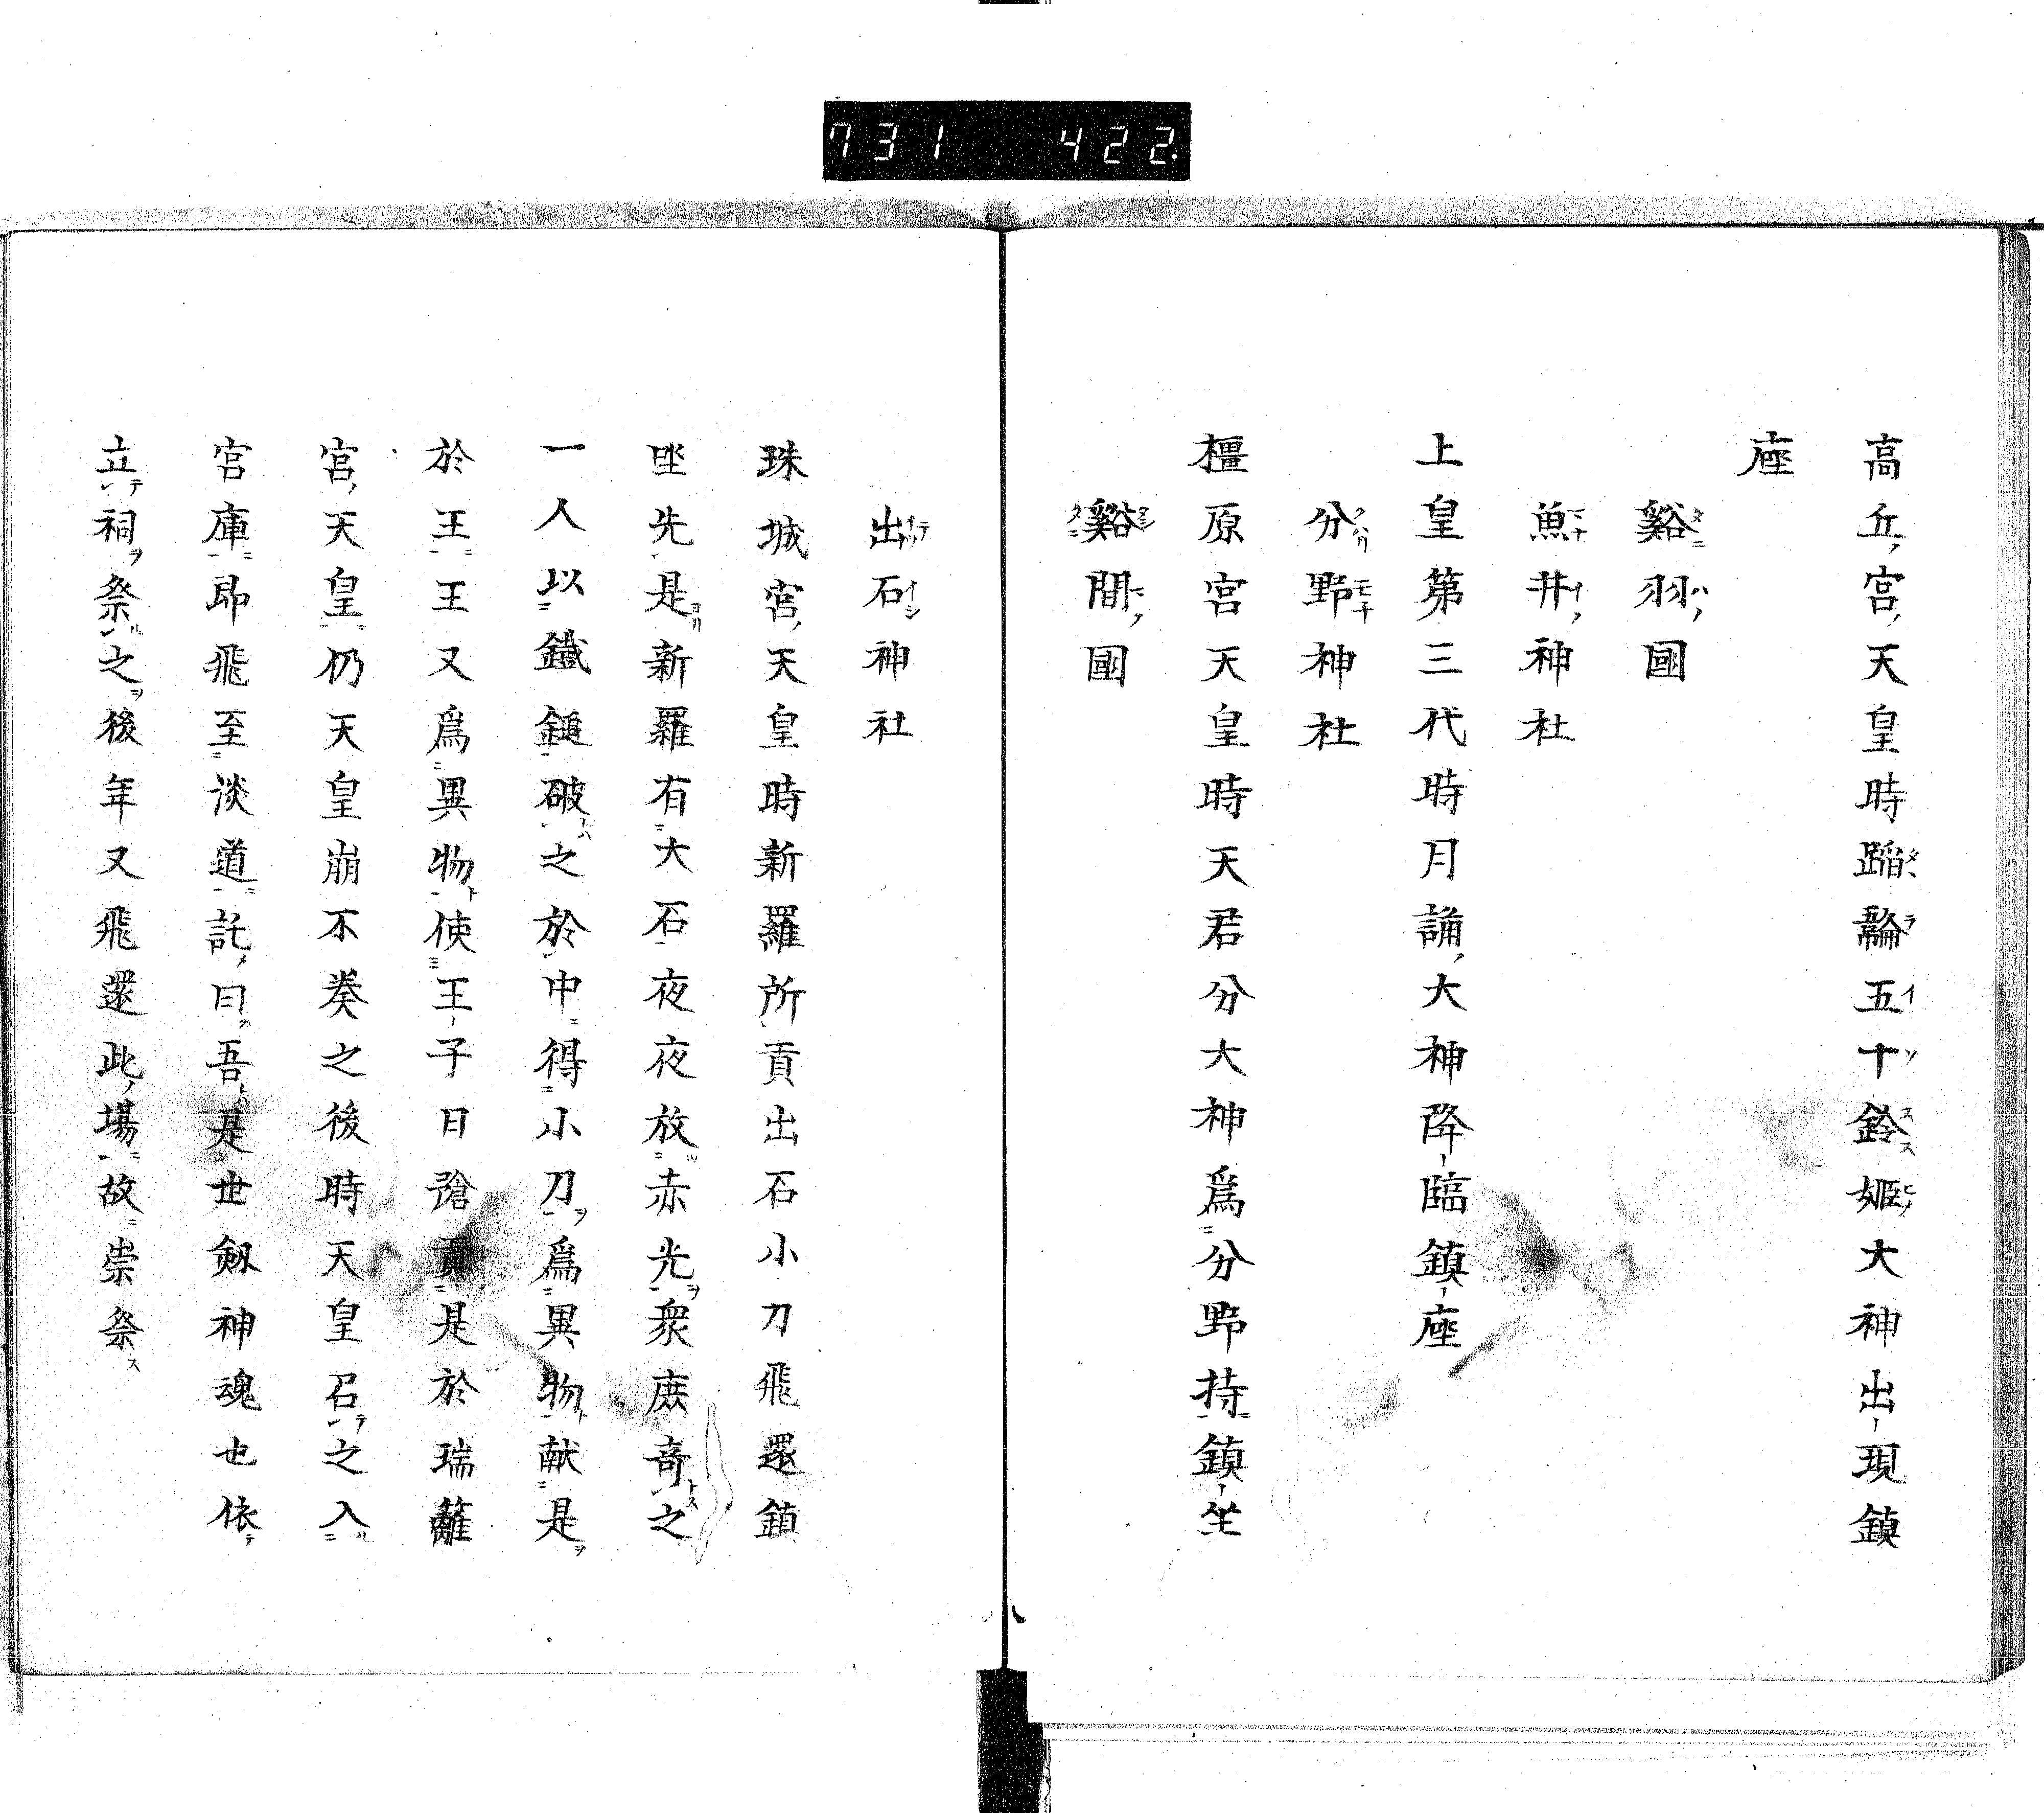 731 422
高丘宮天皇時蹈鞴五十鈴姫大神出現鎮
座
谿羽國
魚井神社
上皇第三代時月誦大神降臨鎮座
分野神社
橿原宮天皇時天君分大神爲分野持鎮坐
谿間國
出石神社
珠城宮天皇時新羅所貢出石小刀飛還鎮
坐先是新羅有大石夜夜放赤光衆庶奇之
一人以鐵鎚破之於中得小刀爲異物献是
於王王又爲異物使王子日貢是於瑞籬
宮天皇仍天皇崩不奏之後時天皇召之入
宮庫即飛至淡道託曰吾是世劔神魂也依
立祠祭之後年又飛還此場故崇祭
八